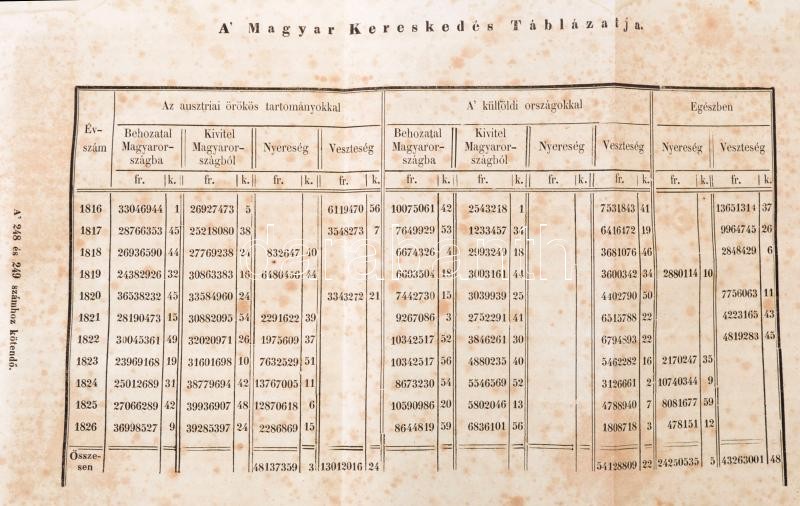 A' Magyar Kereskedés Táblázatja.
Év-szám | Az ausztriai örökös tartományokkal | A' külföldi országokkal | Egészben
Behozatal Magyarországba | Kivitel Magyarországból | Nyereség | Veszteség | Behozatal Magyarországba | Kivitel Magyarországból | Nyereség | Veszteség | Nyereség | Veszteség
fr. | k. | fr. | k. | fr. | k. | fr. | k. | fr. | k. | fr. | k. | fr. | k. | fr. | k. | fr. | k. | fr. | k.
1816 | 33046944 | 1 | 26927473 | 5 | | | 6119470 | 56 | 10075061 | 42 | 2543218 | 1 | | | 7531843 | 41 | | | 13651314 | 37
1817 | 28766353 | 45 | 25218080 | 38 | | | 3548273 | 7 | 7649929 | 53 | 1233457 | 34 | | | 6416472 | 19 | | | 9964745 | 26
1818 | 26936590 | 44 | 27769238 | 24 | 832647 | 40 | | | 6674326 | 4 | 2993249 | 18 | | | 3681076 | 46 | | | 2848429 | 6
1819 | 24382926 | 32 | 30863383 | 16 | 6480456 | 44 | | | 6693504 | 18 | 3003161 | 44 | | | 3600342 | 34 | 2880114 | 10
1820 | 36538232 | 45 | 33584960 | 24 | | | 3343272 | 21 | 7442730 | 15 | 3039939 | 25 | | | 4402790 | 50 | | | 7756063 | 11
1821 | 28190473 | 15 | 30882095 | 54 | 2291622 | 39 | | | 9267086 | 3 | 2752291 | 41 | | | 6515788 | 22 | | | 4223165 | 43
1822 | 30045361 | 49 | 32020971 | 26 | 1975609 | 37 | | | 10342517 | 52 | 3846261 | 30 | | | 6794893 | 22 | | | 4819283 | 45
1823 | 23969168 | 19 | 31601698 | 10 | 7632529 | 51 | | | 10342517 | 56 | 4880235 | 40 | | | 5462282 | 16 | 2170247 | 35
1824 | 25012689 | 31 | 38779694 | 42 | 13767005 | 11 | | | 8673230 | 54 | 5546569 | 52 | | | 3126661 | 2 | 10740344 | 9
1825 | 27066289 | 42 | 39936907 | 48 | 12870618 | 6 | | | 10590986 | 20 | 5802046 | 13 | | | 4788940 | 7 | 8081677 | 59
1826 | 36998527 | 9 | 39285397 | 24 | 2286869 | 15 | | | 8644819 | 59 | 6836101 | 56 | | | 1808718 | 3 | 478151 | 12
Összesen | | | | | 48137359 | 3 | 13012016 | 24 | | | | | | | 54128809 | 22 | 24250535 | 5 | 43263001 | 48
A' 248 és 249 számhoz kötendő.